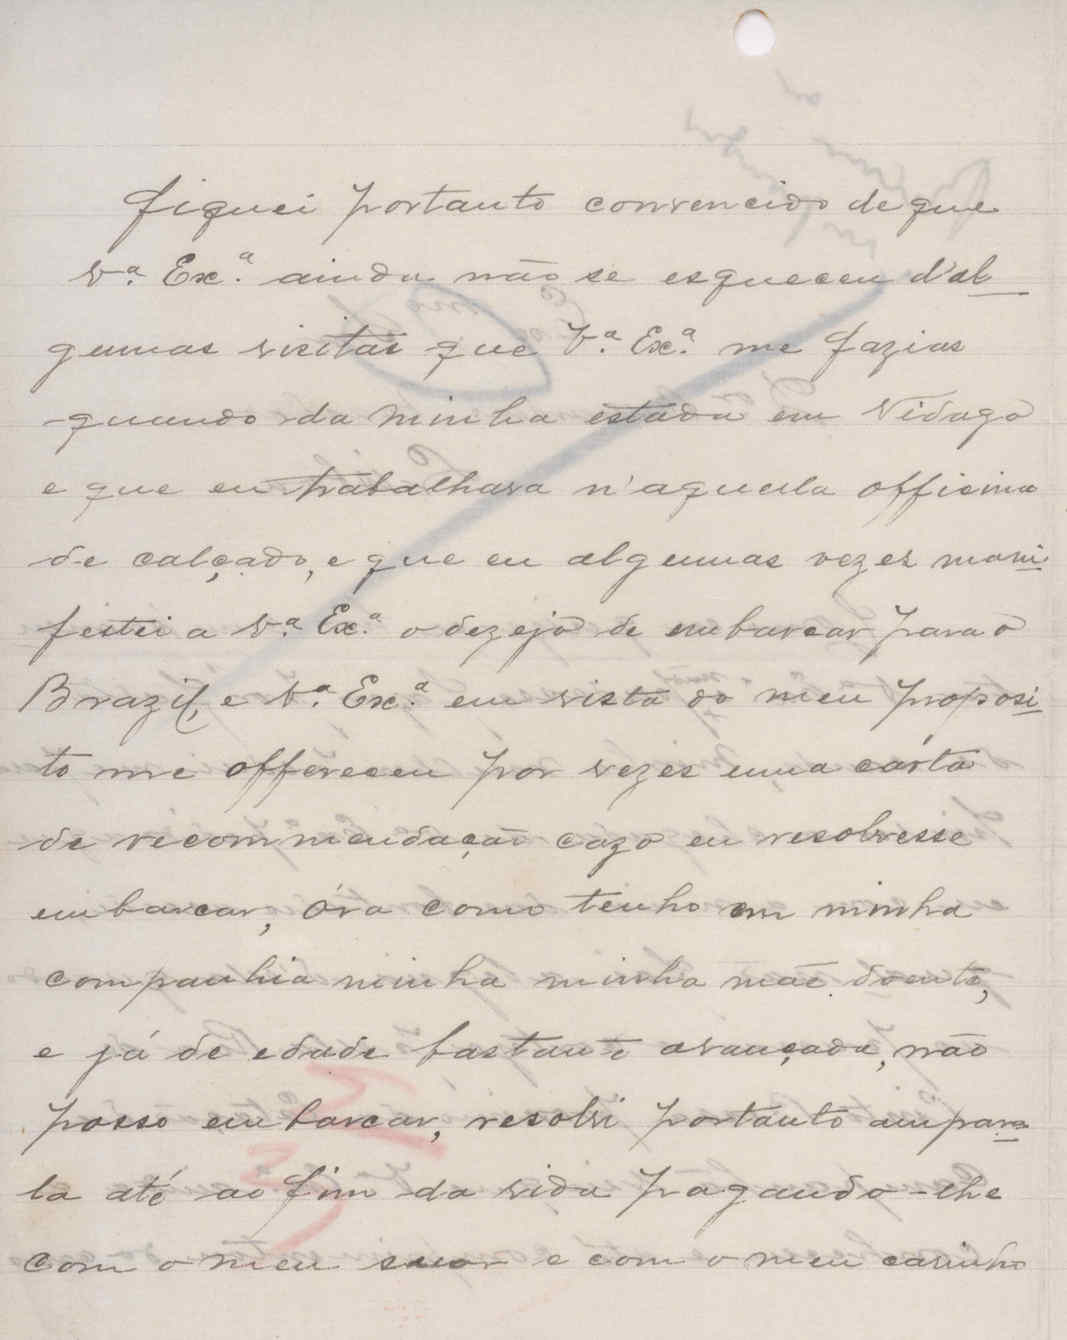 fiquei portanto convencido de que
V.ª Ex.ª ainda não se esqueceu d'al
gumas visitas que V.ª Ex.ª me fazias
quando da minha estada em Vidago
e que eu trabalhava n'aquela officina
de calçado, e que eu algumas vezes mani
festei a V.ª Ex.ª o dezejo de embarcar para o
Brazil, e V.ª Ex.ª em vista do meu proposi
to me offereceu por vezes uma carta
de recommendação cazo eu resolvesse
embarcar, óra como tenho em minha
companhia minha minha mãe doente,
e já de edade bastante avançada, não
posso embarcar, resolvi portanto ampara
la até ao fim da vida pagando-lhe
com o meu suor e com o meu carinho